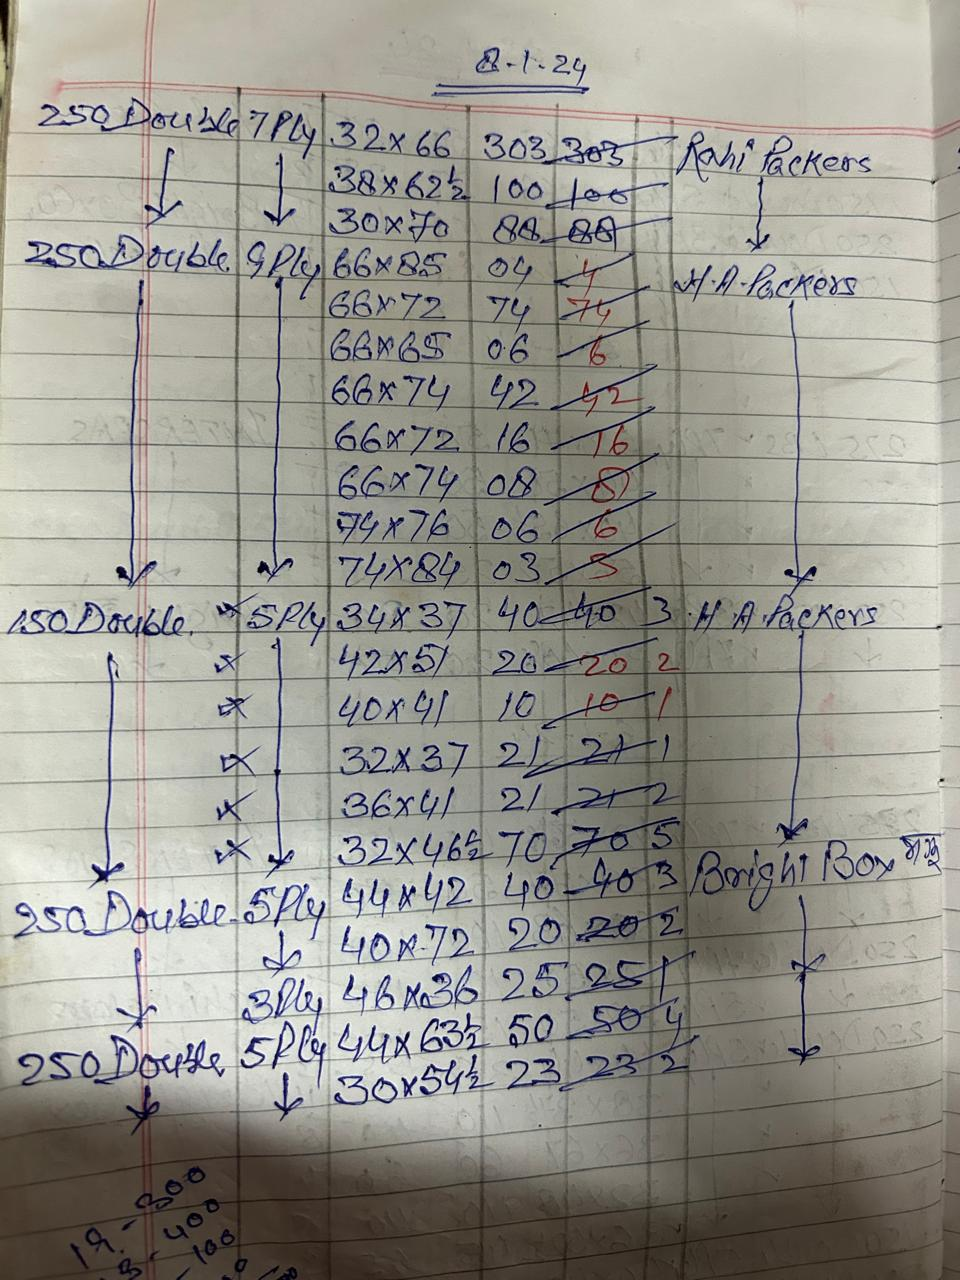 8.1.24
250 Double 7 Ply 32x66 303 303 Rahi Packers
38x62½ 100 100
30x70 88 88
250 Double 9 Ply 66x85 04 4 H.A. Packers
66x72 74 74
66x65 06 6
66x74 42 42
66x72 16 16
66x74 08 8
74x76 06 6
74x84 03 3
150 Double 5 Ply 34x37 40 40 3 H.A. Packers
x 42x51 20 20 2
x 40x41 10 10 1
x 32x37 21 21 1
x 36x41 21 21 2
x 32x46½ 70 70 5
250 Double 5 Ply 44x42 40 40 3 Bright Box
40x72 20 20 2
3 Ply 46x36 25 25 1
250 Double 5 Ply 44x63½ 50 50 4
30x54½ 23 23 2
19.-300
400
100